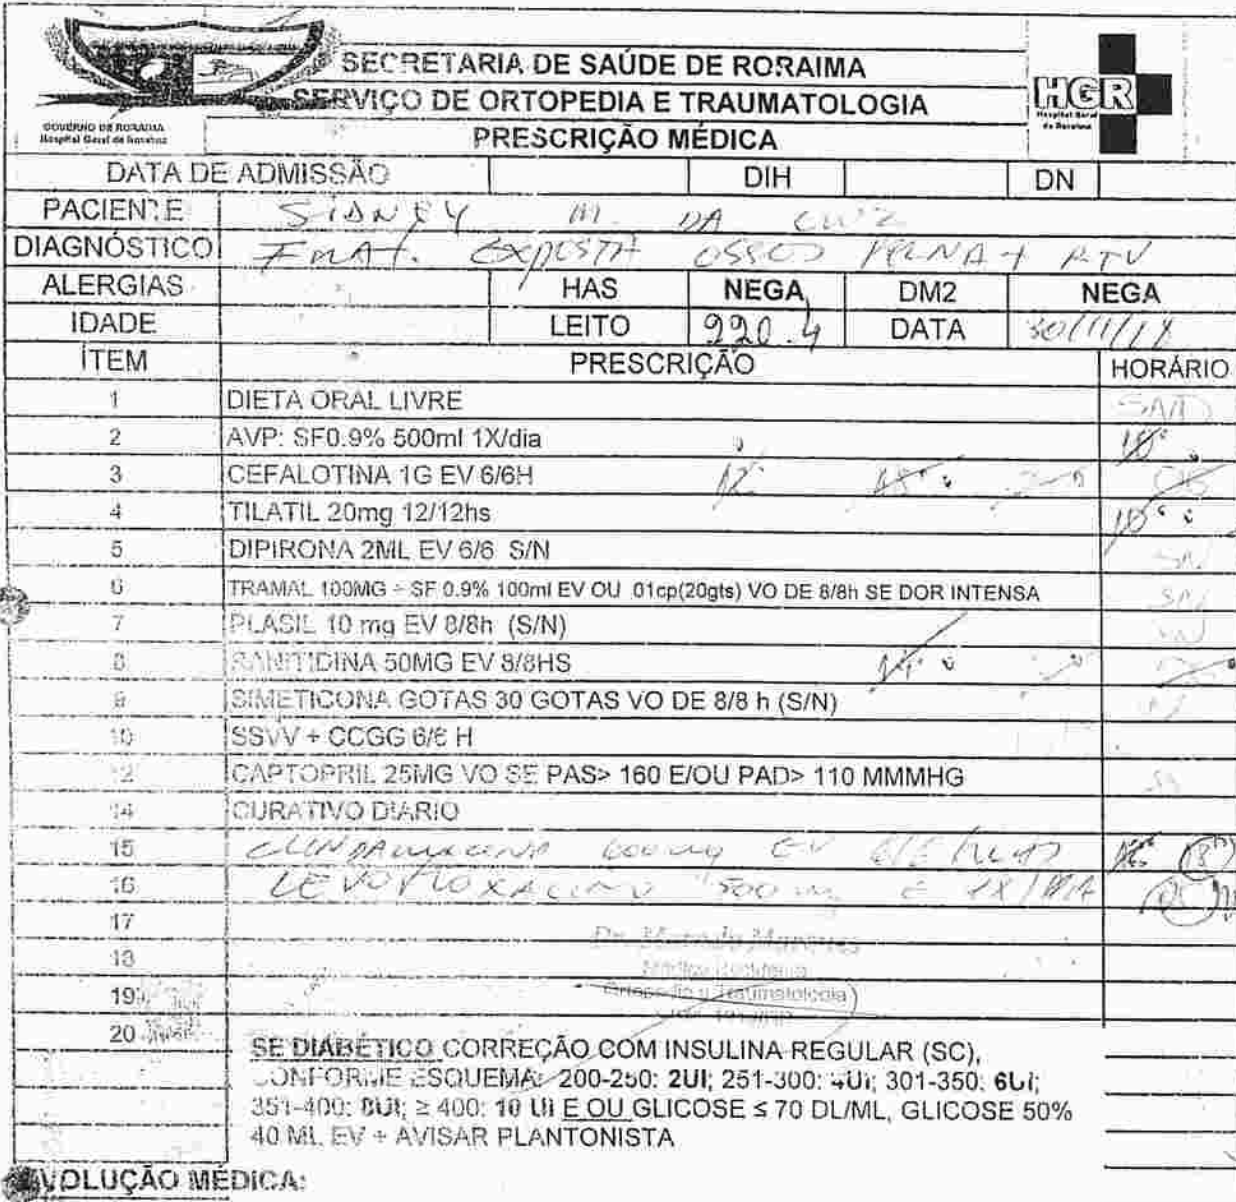 SECRETARIA DE SAÚDE DE RORAIMA
SERVIÇO DE ORTOPEDIA E TRAUMATOLOGIA
PRESCRIÇÃO MÉDICA
GOVERNO DE RORAIMA
Hospital Geral de Roraima
HGR
Hospital Geral
de Roraima
DATA DE ADMISSÃO DIH DN
PACIENTE SIDNEY M. DA CRUZ
DIAGNÓSTICO FRAT. EXPOSTA OSSOS PERNA +
ALERGIAS HAS NEGA DM2 NEGA
IDADE LEITO 220.4 DATA 30/11/18
ÍTEM PRESCRIÇÃO HORÁRIO
1 DIETA ORAL LIVRE SND
2 AVP: SF0.9% 500ml 1X/dia
3 CEFALOTINA 1G EV 6/6H 12 18
4 TILATIL 20mg 12/12hs
5 DIPIRONA 2ML EV 6/6 S/N SN
6 TRAMAL 100MG + SF 0.9% 100ml EV OU 01cp(20gts) VO DE 8/8h SE DOR INTENSA SN
7 PLASIL 10 mg EV 8/8h (S/N) SN
8 RANITIDINA 50MG EV 8/8HS 14
9 SIMETICONA GOTAS 30 GOTAS VO DE 8/8 h (S/N)
10 SSVV + CCGG 6/6 H
12 CAPTOPRIL 25MG VO SE PAS> 160 E/OU PAD> 110 MMMHG SN
14 CURATIVO DIÁRIO
15 CLINDAMICINA 600mg EV 6/6 HORAS
16 LEVOFLOXACINO 500mg 1X/DIA
17
18
19
20
Ortopedia e Traumatologia
SE DIABÉTICO CORREÇÃO COM INSULINA REGULAR (SC),
CONFORME ESQUEMA: 200-250: 2UI; 251-300: 4UI; 301-350: 6UI;
351-400: 8UI; ≥ 400: 10 UI E OU GLICOSE ≤ 70 DL/ML, GLICOSE 50%
40 ML EV + AVISAR PLANTONISTA
EVOLUÇÃO MÉDICA: